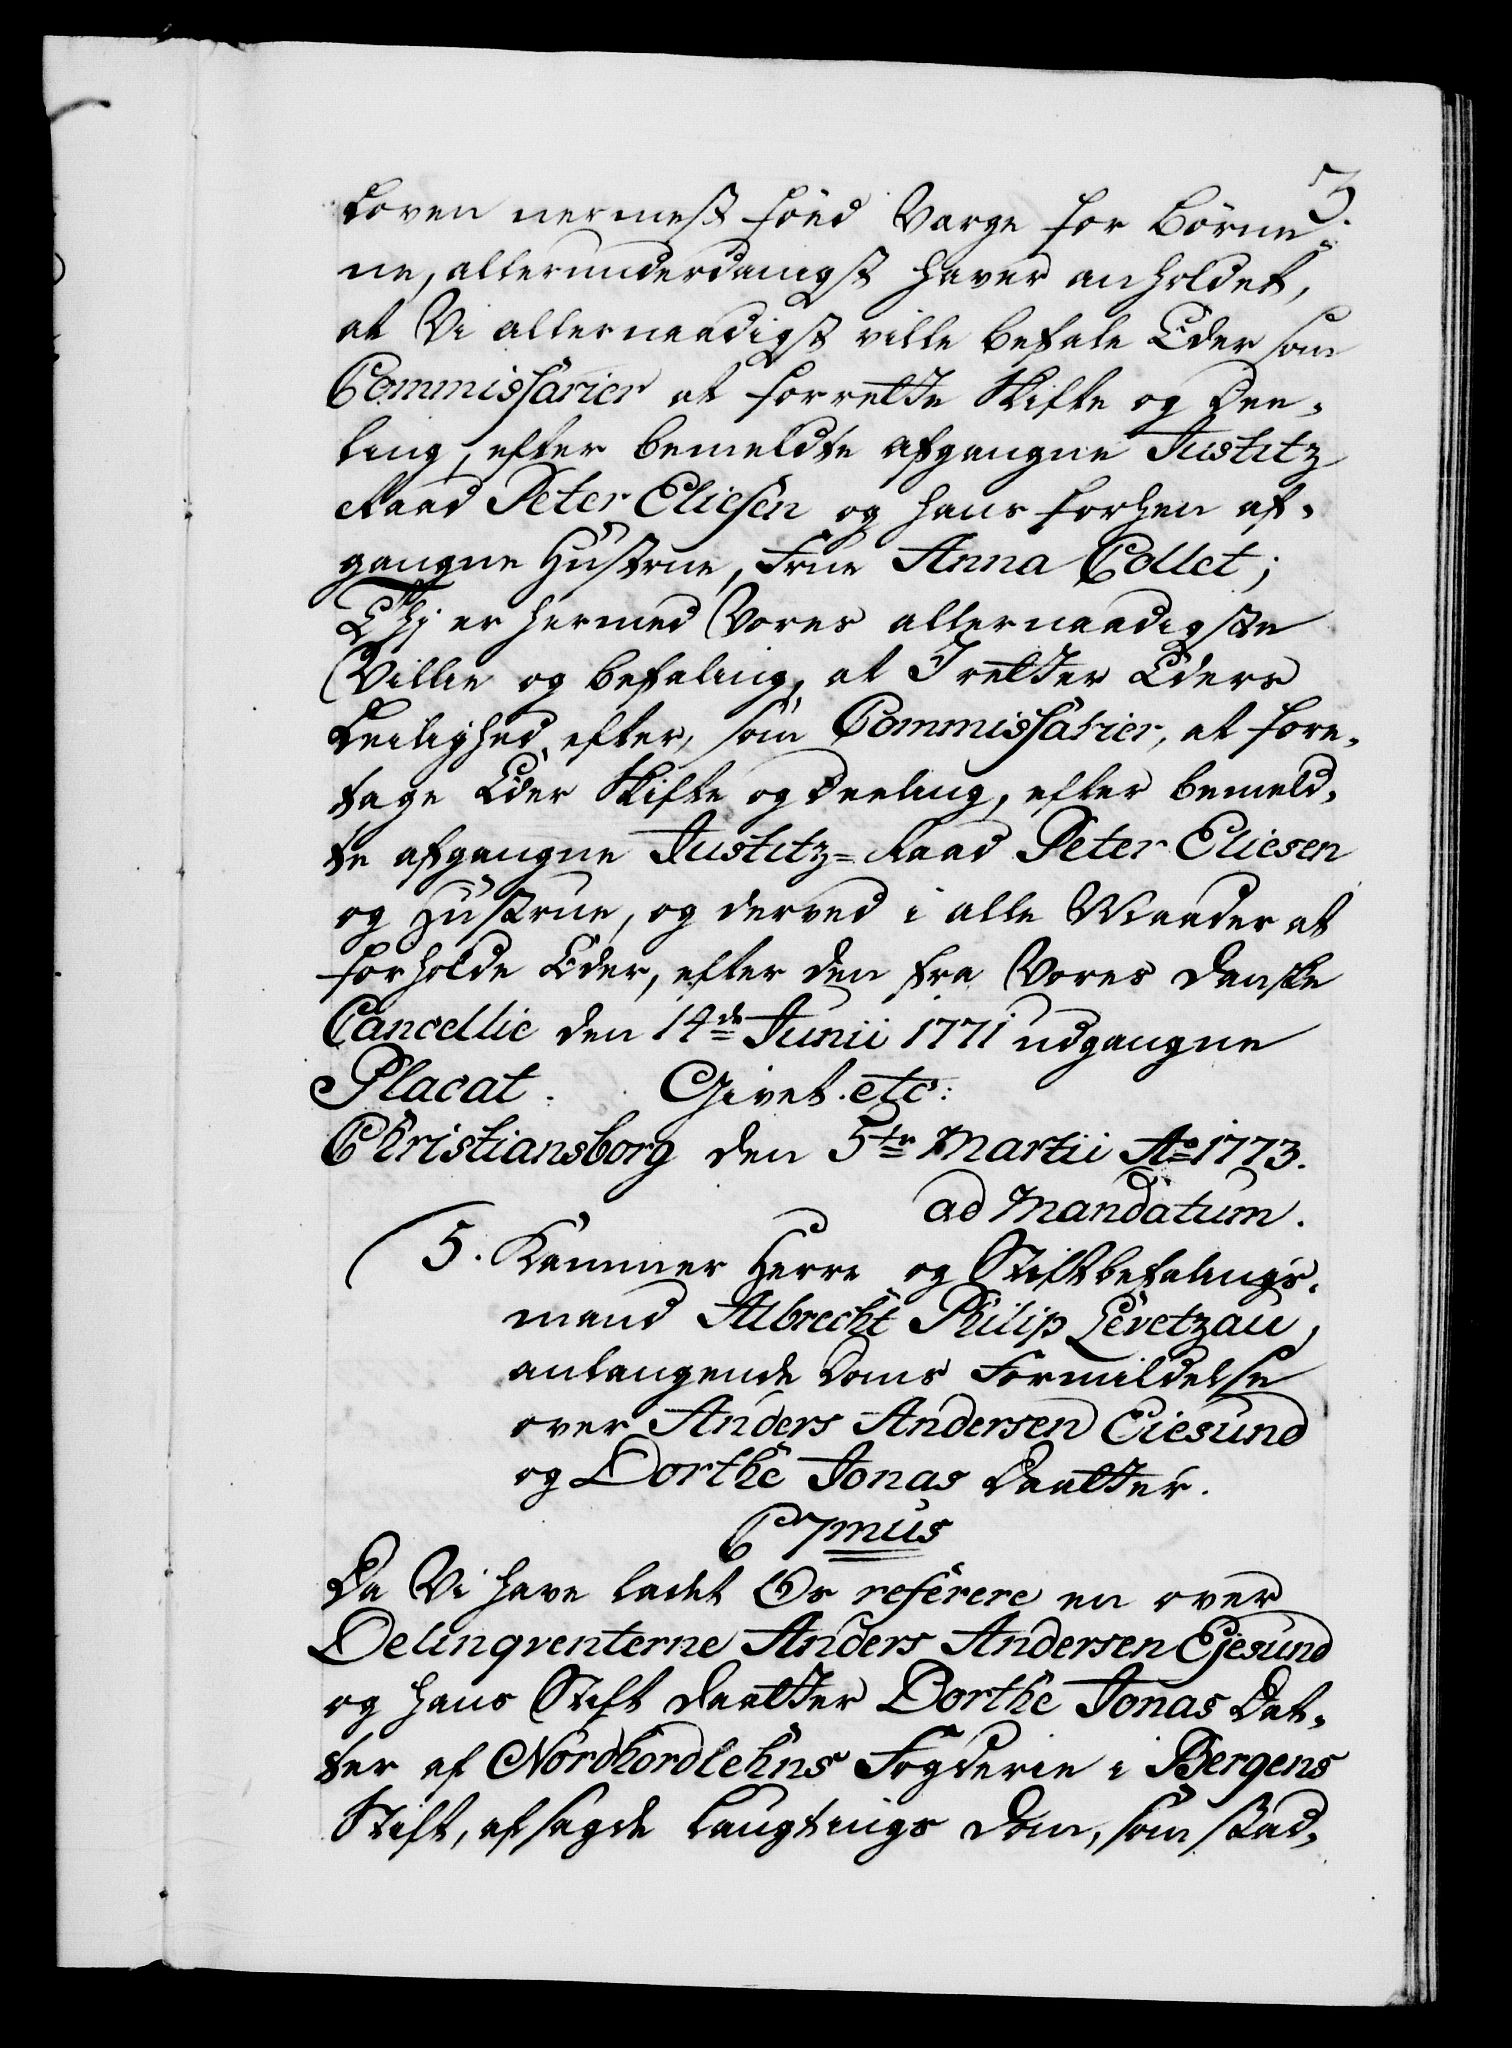 3.
Loven nermest fød Værge for Børne-
ne, allerunderdanigst haver anholdet,
at Vi allernaadigst ville befale Eder som
Commissarier at forrette Skifte og Dee-
ling, efter bemeldte afgangne Justitz
Raad Peter Eliesen og hans forhen af-
gangne Hustrue, Frue Anna Collet;
Thj er hermed Vores allernaadigste
Villie og befaling, at I retter Eders
Leilighed efter, som Commissarier, at fore-
tage Eder Skifte og Deeling, efter bemeld-
te afgangne Justitz=Raad Peter Eliesen
og Hustrue, og derved i alle Maader at
forholde Eder, efter den fra Vores Danske
Cancellie den 14de Junii 1771 udgangne
Placat. Givet. etc:
Christiansborg den 5te Martii Ao 1773.
ad Mandatum.
5. Kammer Herre og Stiftbefalings-
mand Albrecht Philip Levetzau,
anlangende Doms Formildelse
over Anders Andersen Eiesund
og Dorthe Jonas Daatter.
C 7mus
Da Vi have ladet Os referere en over
Delinqventerne Anders Andersen Ejesund
og hans Stift Daatter Dorthe Jonas Dat-
ter af Nordhordlehns Fogderie i Bergens
Stift, afsagde Laugtings Dom, som stad-